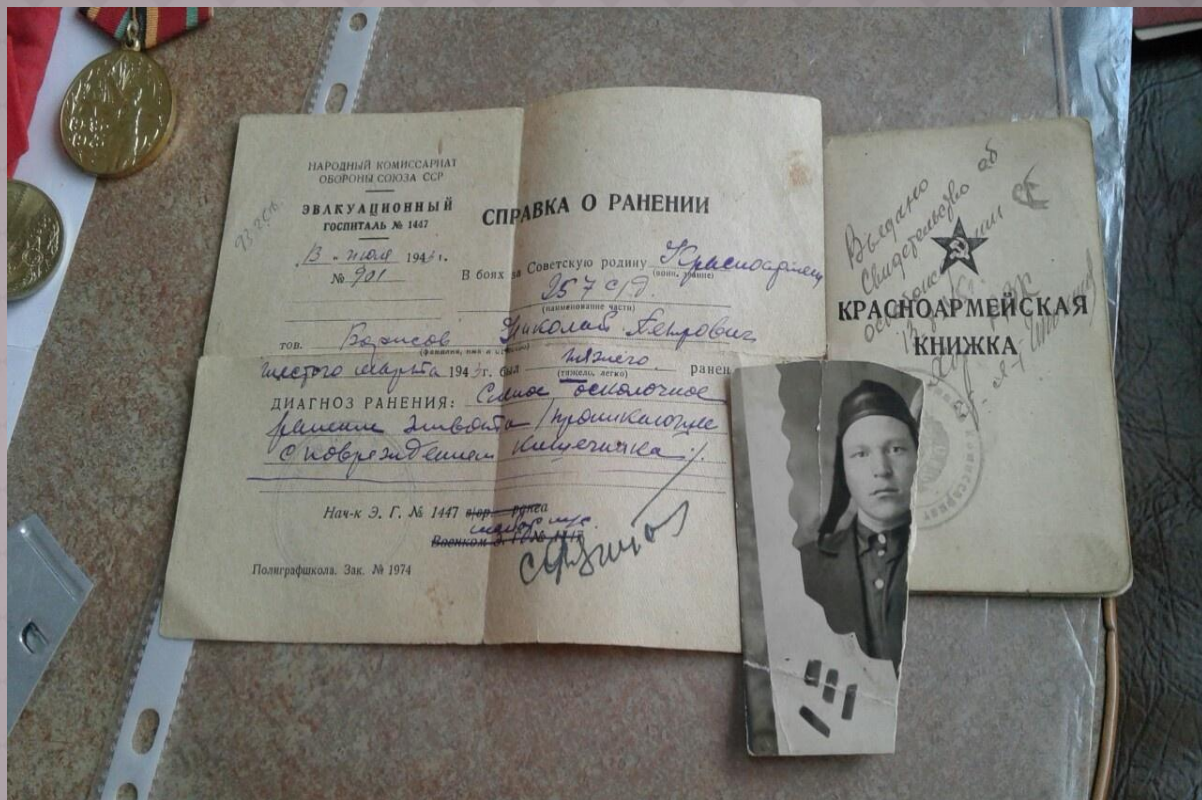 НАРОДНЫЙ КОМИССАРИАТ
ОБОРОНЫ СОЮЗА ССР
ЭВАКУАЦИОННЫЙ
ГОСПИТАЛЬ № 1447
13 июля 1943 г.
№ 901
СПРАВКА О РАНЕНИИ
В боях за Советскую родину Красноармеец
(воин. звание)
257 с/д.
(наименование части)
тов. Борисов Николай Петрович
(фамилия, имя и отчество)
шестого марта 1943 г. был тяжело ранен
(тяжело, легко)
ДИАГНОЗ РАНЕНИЯ: Слепое осколочное
ранение живота /проникающее
с повреждением кишечника/.
Нач-к Э. Г. № 1447
Военком
Полиграфшкола. Зак. № 1974
Выдано
Свидетельство об
освобождении
КРАСНОАРМЕЙСКАЯ
КНИЖКА
1945